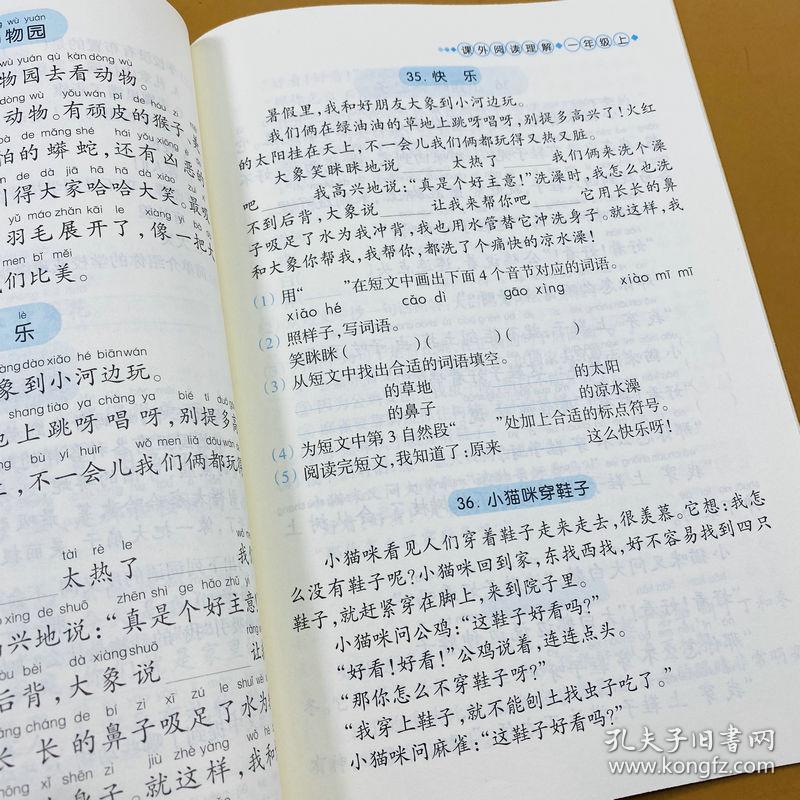 wù yuán
物园
wù yuán qù kàn dòng wù
物园去看动物。
dòng wù yǒu wán pí de hóu zi
动物。有顽皮的猴子
pà de mǎng shé hái yǒu xiōng è
怕的蟒蛇,还有凶恶的
引得大家哈哈大笑。最
yǔ máo zhǎn kāi le xiàng yì bǎ
羽毛展开了,像一把大
men bǐ měi
们比美。
lè
乐
xiàng dào xiǎo hé biān wán
象到小河边玩。
shang tiào ya chàng ya bié tí duō
上跳呀唱呀,别提多高
bù yí huìr wǒ men liǎ dōu wán
,不一会儿我们俩都玩得
tài rè le
太热了
xìng de shuō zhēn shì ge hǎo zhǔ yi
兴地说:“真是个好主意!
bèi dà xiàng shuō
后背,大象说 让
cháng cháng de bí zi xī zú le shuǐ wèi
长长的鼻子吸足了水为我
xǐ shēn zi jiù zhè yàng
冲洗身子。就这样,我和
课外阅读理解 一年级上
35. 快 乐
暑假里,我和好朋友大象到小河边玩。
我们俩在绿油油的草地上跳呀唱呀,别提多高兴了!火红
的太阳挂在天上,不一会儿我们俩都玩得又热又脏。
大象笑眯眯地说 太热了 我们俩来洗个澡
吧 我高兴地说:“真是个好主意!”洗澡时,我怎么也洗
不到后背,大象说 让我来帮你吧 它用长长的鼻
子吸足了水为我冲背,我也用水管替它冲洗身子。就这样,我
和大象你帮我,我帮你,都洗了个痛快的凉水澡!
(1) 用“ ”在短文中画出下面4个音节对应的词语。
xiǎo hé cáo dì gāo xìng xiào mī mī
(2) 照样子,写词语。
笑眯眯( )( )( )
(3) 从短文中找出合适的词语填空。
的草地 的太阳
的鼻子 的凉水澡
(4) 为短文中第3自然段“ ”处加上合适的标点符号。
(5) 阅读完短文,我知道了:原来 这么快乐呀!
36. 小猫咪穿鞋子
小猫咪看见人们穿着鞋子走来走去,很羡慕。它想:我怎
么没有鞋子呢?小猫咪回到家,东找西找,好不容易找到四只
鞋子,就赶紧穿在脚上,来到院子里。
小猫咪问公鸡:“这鞋子好看吗?”
“好看!好看!”公鸡说着,连连点头。
“那你怎么不穿鞋子呀?”
“我穿上鞋子,就不能刨土找虫子吃了。”
小猫咪问麻雀:“这鞋子好看吗?”
孔夫子旧书网
www.kongfz.com